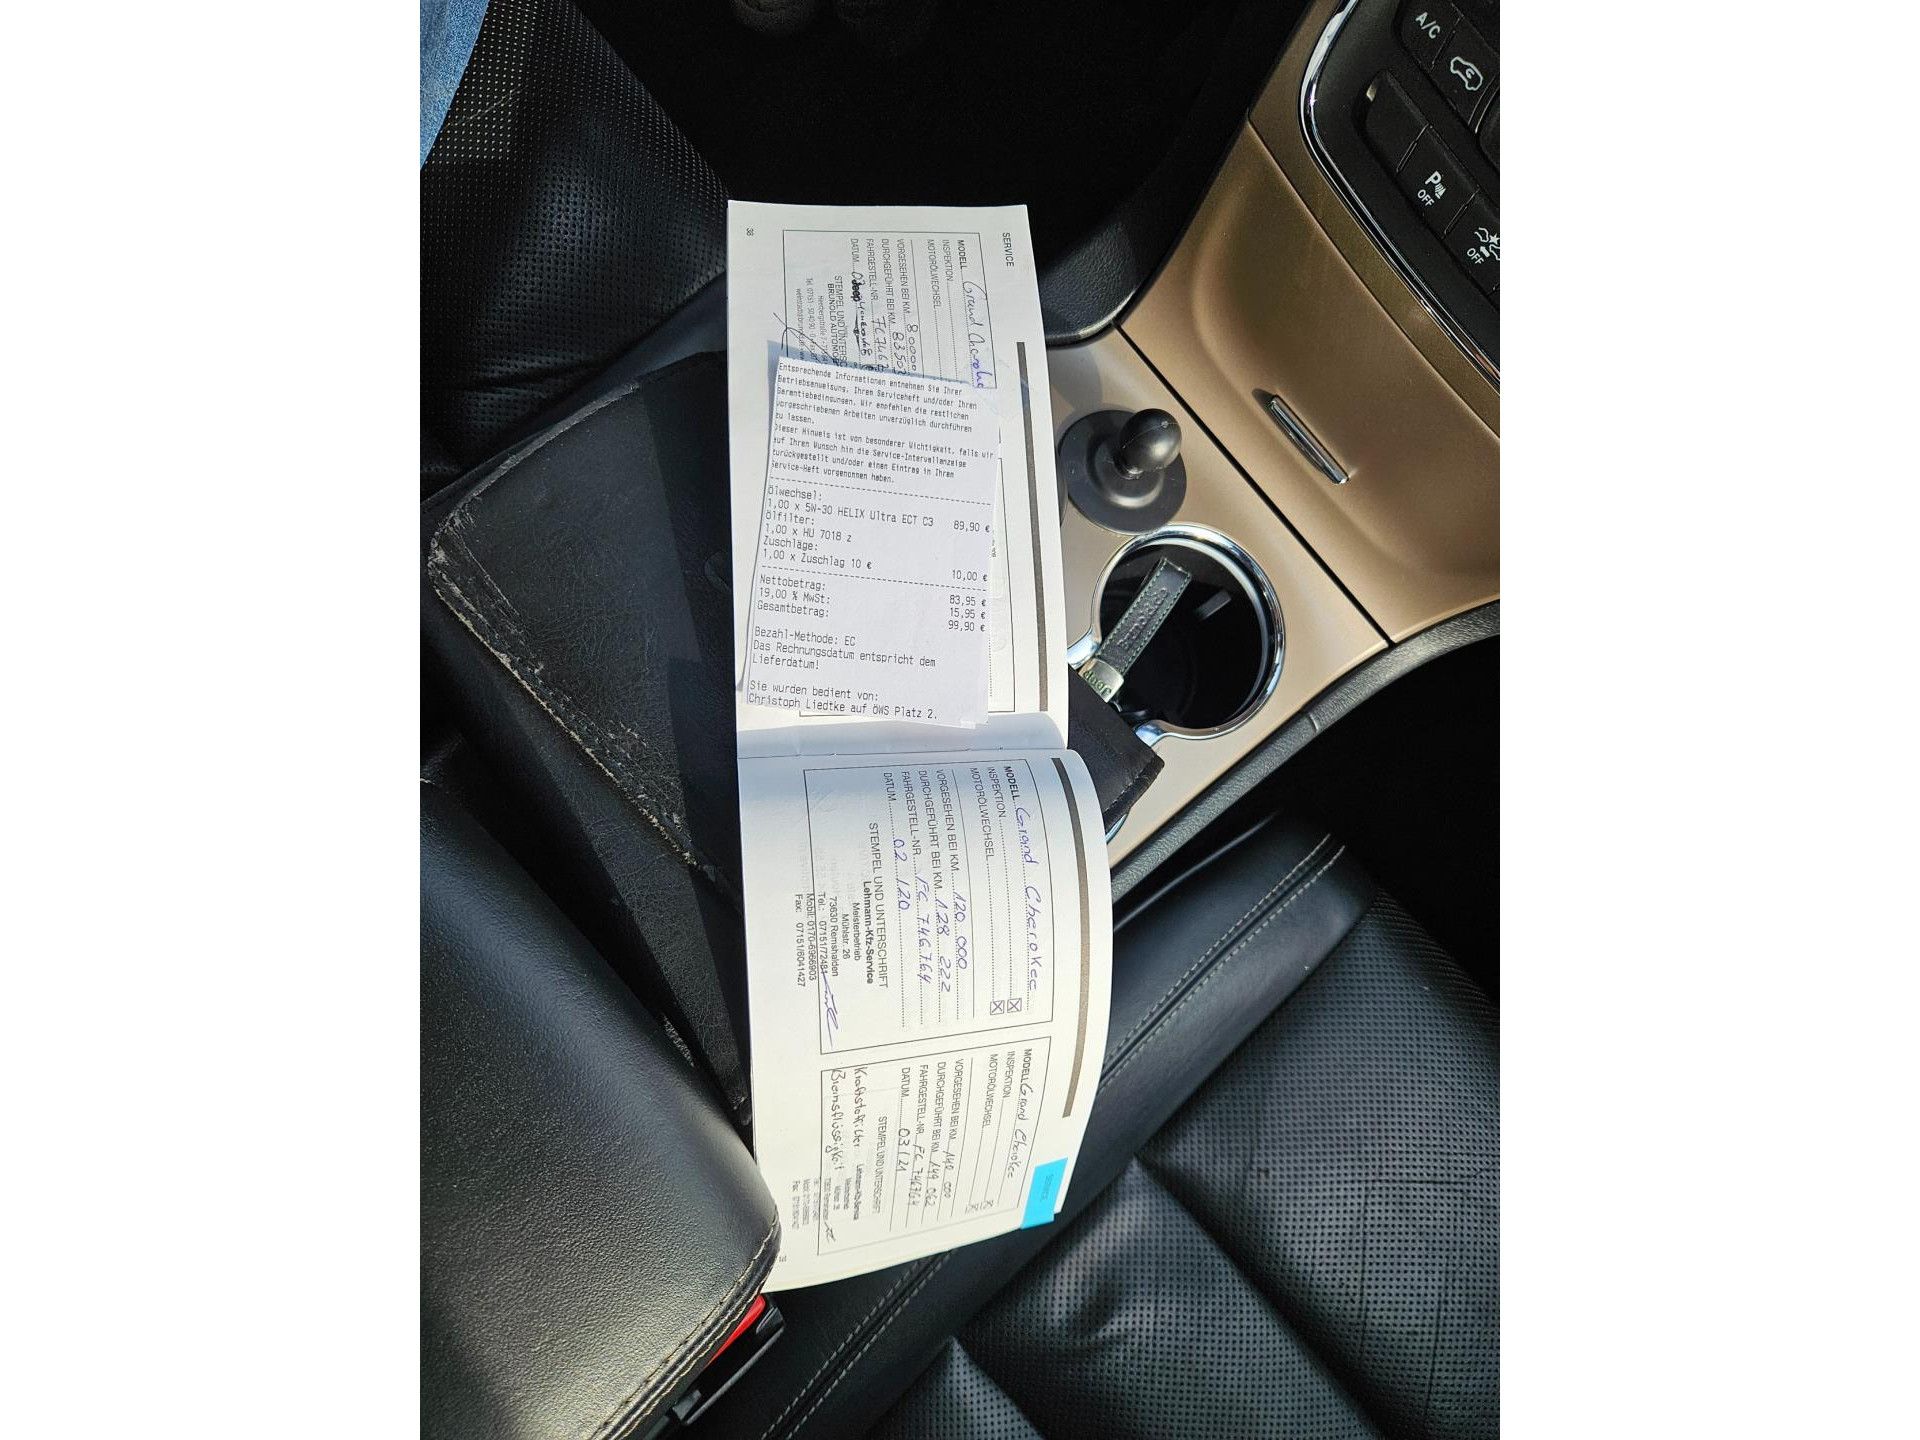 SERVICE
MODELL Grand Cherokee
INSPEKTION
MOTORÖLWECHSEL
VORGESEHEN BEI KM 80000
DURCHGEFÜHRT BEI KM
FAHRGESTELL-NR.
DATUM
Jeep
36
Entsprechende Informationen entnehmen Sie Ihrer
Betriebsanweisung, Ihrem Serviceheft und/oder Ihren
Garantiebedingungen. Wir empfehlen die restlichen
vorgeschriebenen Arbeiten unverzüglich durchführen
zu lassen.
Dieser Hinweis ist von besonderer Wichtigkeit, falls wir
auf Ihren Wunsch hin die Service-Intervallanzeige
zurückgestellt und/oder einen Eintrag in Ihrem
Service-Heft vorgenommen haben.
Ölwechsel:
1,00 x 5W-30 HELIX Ultra ECT C3 89,90 €
Ölfilter:
1,00 x HU 7018 z
Zuschläge:
1,00 x Zuschlag 10 € 10,00 €
Nettobetrag: 83,95 €
19,00 % MwSt: 15,95 €
Gesamtbetrag: 99,90 €
Bezahl-Methode: EC
Das Rechnungsdatum entspricht dem
Lieferdatum!
Sie wurden bedient von:
Christoph Liedtke auf ÖWS Platz 2.
MODELL Grand Cherokee
INSPEKTION
MOTORÖLWECHSEL
VORGESEHEN BEI KM 120 000
DURCHGEFÜHRT BEI KM 128 222
FAHRGESTELL-NR. FC 746764
DATUM 02 120
STEMPEL UND UNTERSCHRIFT
Lehmann-Kfz-Service
Meisterbetrieb
Mühlstr. 26
73630 Remshalden
Tel.: 07151/72481
Mobil: 0170-6966903
Fax: 07151/6041427
MODELL Grand Cherokee
INSPEKTION
MOTORÖLWECHSEL
VORGESEHEN BEI KM 140 000
DURCHGEFÜHRT BEI KM 149 062
FAHRGESTELL-NR. FC 746764
DATUM 03/21
STEMPEL UND UNTERSCHRIFT
Kraftstofffilter
Bremsflüssigkeit
Lehmann-Kfz-Service
SERVICE
A/C
P
OFF
OFF
JEEP